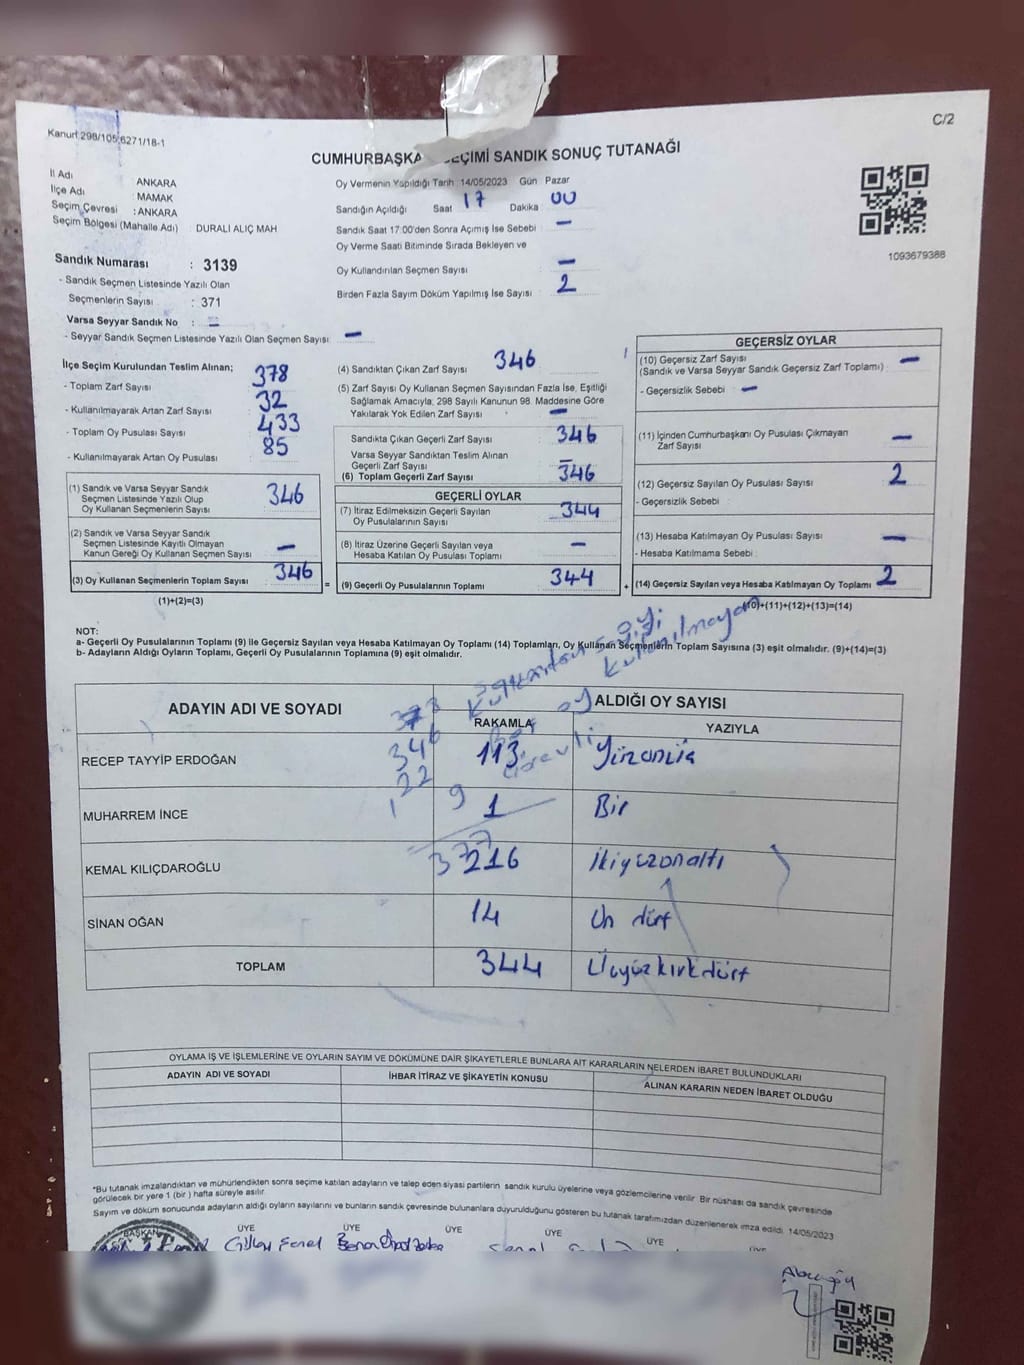 Kanun 298/105,6271/18-1
C/2
CUMHURBAŞKA EÇİMİ SANDIK SONUÇ TUTANAĞI
İl Adı : ANKARA
İlçe Adı : MAMAK
Seçim Çevresi : ANKARA
Seçim Bölgesi (Mahalle Adı) : DURALİ ALIÇ MAH
Sandık Numarası : 3139
- Sandık Seçmen Listesinde Yazılı Olan
Seçmenlerin Sayısı : 371
Varsa Seyyar Sandık No : -
- Seyyar Sandık Seçmen Listesinde Yazılı Olan Seçmen Sayısı : -
Oy Vermenin Yapıldığı Tarih : 14/05/2023 Gün Pazar
Sandığın Açıldığı Saat 17 Dakika 00
Sandık Saat 17:00'den Sonra Açımış İse Sebebi : -
Oy Verme Saati Bitiminde Sırada Bekleyen ve
Oy Kullandırılan Seçmen Sayısı : -
Birden Fazla Sayım Döküm Yapılmış İse Sayısı : 2
1093679388
İlçe Seçim Kurulundan Teslim Alınan;
- Toplam Zarf Sayısı : 378
- Kullanılmayarak Artan Zarf Sayısı : 32
- Toplam Oy Pusulası Sayısı : 433
- Kullanılmayarak Artan Oy Pusulası : 85
(1) Sandık ve Varsa Seyyar Sandık
Seçmen Listesinde Yazılı Olup
Oy Kullanan Seçmenlerin Sayısı : 346
(2) Sandık ve Varsa Seyyar Sandık
Seçmen Listesinde Kayıtlı Olmayan
Kanun Gereği Oy Kullanan Seçmen Sayısı : -
(3) Oy Kullanan Seçmenlerin Toplam Sayısı : 346
(1)+(2)=(3)
(4) Sandıktan Çıkan Zarf Sayısı : 346
(5) Zarf Sayısı Oy Kullanan Seçmen Sayısından Fazla İse, Eşitliği
Sağlamak Amacıyla, 298 Sayılı Kanunun 98. Maddesine Göre
Yakılarak Yok Edilen Zarf Sayısı : -
Sandıkta Çıkan Geçerli Zarf Sayısı : 346
Varsa Seyyar Sandıktan Teslim Alınan
Geçerli Zarf Sayısı : -
(6) Toplam Geçerli Zarf Sayısı : 346
GEÇERLİ OYLAR
(7) İtiraz Edilmeksizin Geçerli Sayılan
Oy Pusulalarının Sayısı : 344
(8) İtiraz Üzerine Geçerli Sayılan veya
Hesaba Katılan Oy Pusulası Toplamı : -
= (9) Geçerli Oy Pusulalarının Toplamı : 344
GEÇERSİZ OYLAR
(10) Geçersiz Zarf Sayısı
(Sandık ve Varsa Seyyar Sandık Geçersiz Zarf Toplamı) : -
- Geçersizlik Sebebi : -
(11) İçinden Cumhurbaşkanı Oy Pusulası Çıkmayan
Zarf Sayısı : -
(12) Geçersiz Sayılan Oy Pusulası Sayısı : 2
- Geçersizlik Sebebi :
(13) Hesaba Katılmayan Oy Pusulası Sayısı : -
- Hesaba Katılmama Sebebi :
+ (14) Geçersiz Sayılan veya Hesaba Katılmayan Oy Toplamı : 2
(10)+(11)+(12)+(13)=(14)
NOT:
a- Geçerli Oy Pusulalarının Toplamı (9) ile Geçersiz Sayılan veya Hesaba Katılmayan Oy Toplamı (14) Toplamları, Oy Kullanan Seçmenlerin Toplam Sayısına (3) eşit olmalıdır. (9)+(14)=(3)
b- Adayların Aldığı Oyların Toplamı, Geçerli Oy Pusulalarının Toplamına (9) eşit olmalıdır.
ADAYIN ADI VE SOYADI
ALDIĞI OY SAYISI
RAKAMLA YAZIYLA
RECEP TAYYİP ERDOĞAN 113 Yüzonüç
MUHARREM İNCE 1 Bir
KEMAL KILIÇDAROĞLU 216 ikiyüzonaltı
SİNAN OĞAN 14 On dört
TOPLAM 344 Üçyüzkırkdört
346
22
9
377
OYLAMA İŞ VE İŞLEMLERİNE VE OYLARIN SAYIM VE DÖKÜMÜNE DAİR ŞİKAYETLERLE BUNLARA AİT KARARLARIN NELERDEN İBARET BULUNDUKLARI
ADAYIN ADI VE SOYADI İHBAR İTİRAZ VE ŞİKAYETİN KONUSU ALINAN KARARIN NEDEN İBARET OLDUĞU
*Bu tutanak imzalandıktan ve mühürlendikten sonra seçime katılan adayların ve talep eden siyasi partilerin sandık kurulu üyelerine veya gözlemcilerine verilir. Bir nüshası da sandık çevresinde
görülecek bir yere 1 (bir) hafta süreyle asılır.
Sayım ve döküm sonucunda adayların aldığı oyların sayılarını ve bunların sandık çevresinde bulunanlara duyurulduğunu gösteren bu tutanak tarafımızdan düzenlenerek imza edildi. 14/05/2023
BAŞKAN ÜYE ÜYE ÜYE ÜYE ÜYE ÜYE